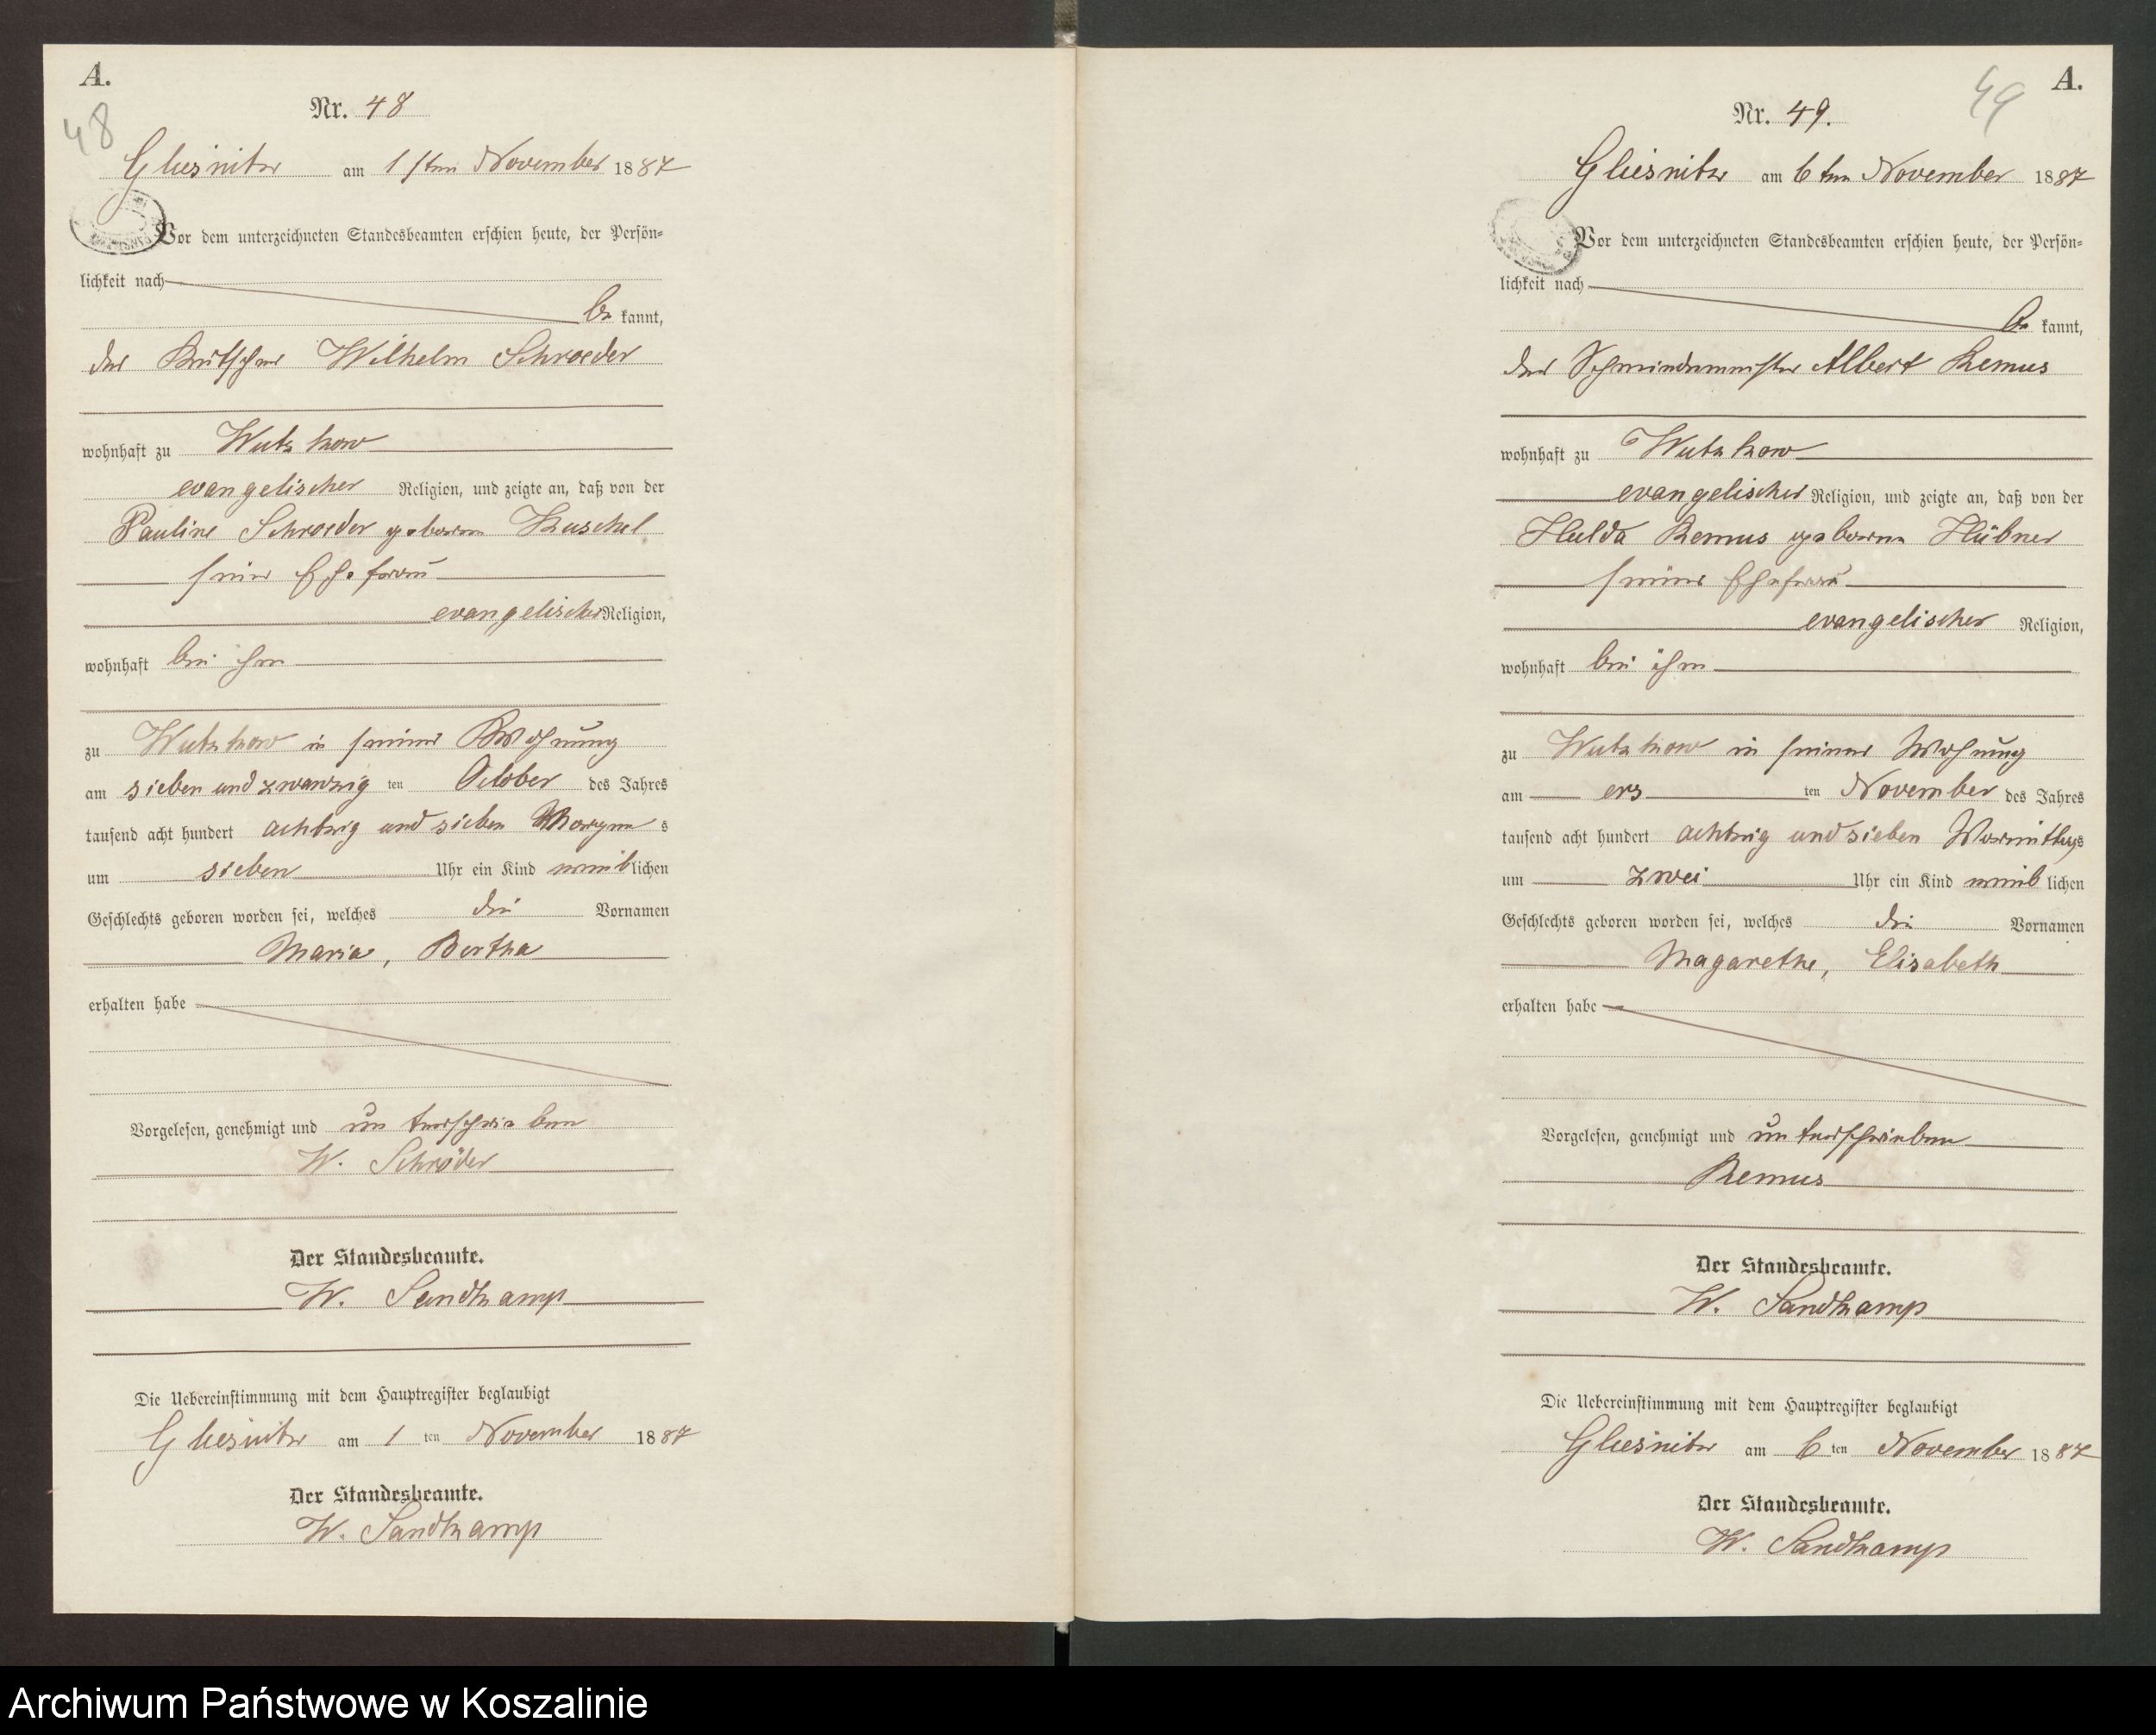 A.
48
Nr. 48
Gliesnitz am 1sten November 1887
Vor dem unterzeichneten Standesbeamten erschien heute, der Persön=
lichkeit nach
be kannt,
der Kutscher Wilhelm Schroeder
wohnhaft zu Wutzkow
evangelischer Religion, und zeigte an, daß von der
Pauline Schroeder geborne Kuschel
seiner Ehefrau
evangelischer Religion,
wohnhaft bei ihm
zu Wutzkow in seiner Wohnung
am sieben und zwanzig ten October des Jahres
tausend acht hundert achtzig und sieben Morgen s
um sieben Uhr ein Kind weib lichen
Geschlechts geboren worden sei, welches die Vornamen
Maria, Bertha
erhalten habe
Vorgelesen, genehmigt und unterschrieben
W. Schröder
Der Standesbeamte.
W. Sandkamp
Die Uebereinstimmung mit dem Hauptregister beglaubigt
Gliesnitz am 1 ten November 1887
Der Standesbeamte.
W. Sandkamp
A.
49
Nr. 49.
Gliesnitz am 6ten November 1887
Vor dem unterzeichneten Standesbeamten erschien heute, der Persön=
lichkeit nach
be kannt,
der Schmiedemeister Albert Remus
wohnhaft zu Wutzkow
evangelischer Religion, und zeigte an, daß von der
Hulda Remus geborne Hübner
seiner Ehefrau
evangelischer Religion,
wohnhaft bei ihm
zu Wutzkow in seiner Wohnung
am ers ten November des Jahres
tausend acht hundert achtzig und sieben Vormittags
um zwei Uhr ein Kind weib lichen
Geschlechts geboren worden sei, welches die Vornamen
Magarethe, Elisabeth
erhalten habe
Vorgelesen, genehmigt und unterschrieben
Remus
Der Standesbeamte.
W. Sandkamp
Die Uebereinstimmung mit dem Hauptregister beglaubigt
Gliesnitz am 6 ten November 1887
Der Standesbeamte.
W. Sandkamp
Archiwum Państwowe w Koszalinie